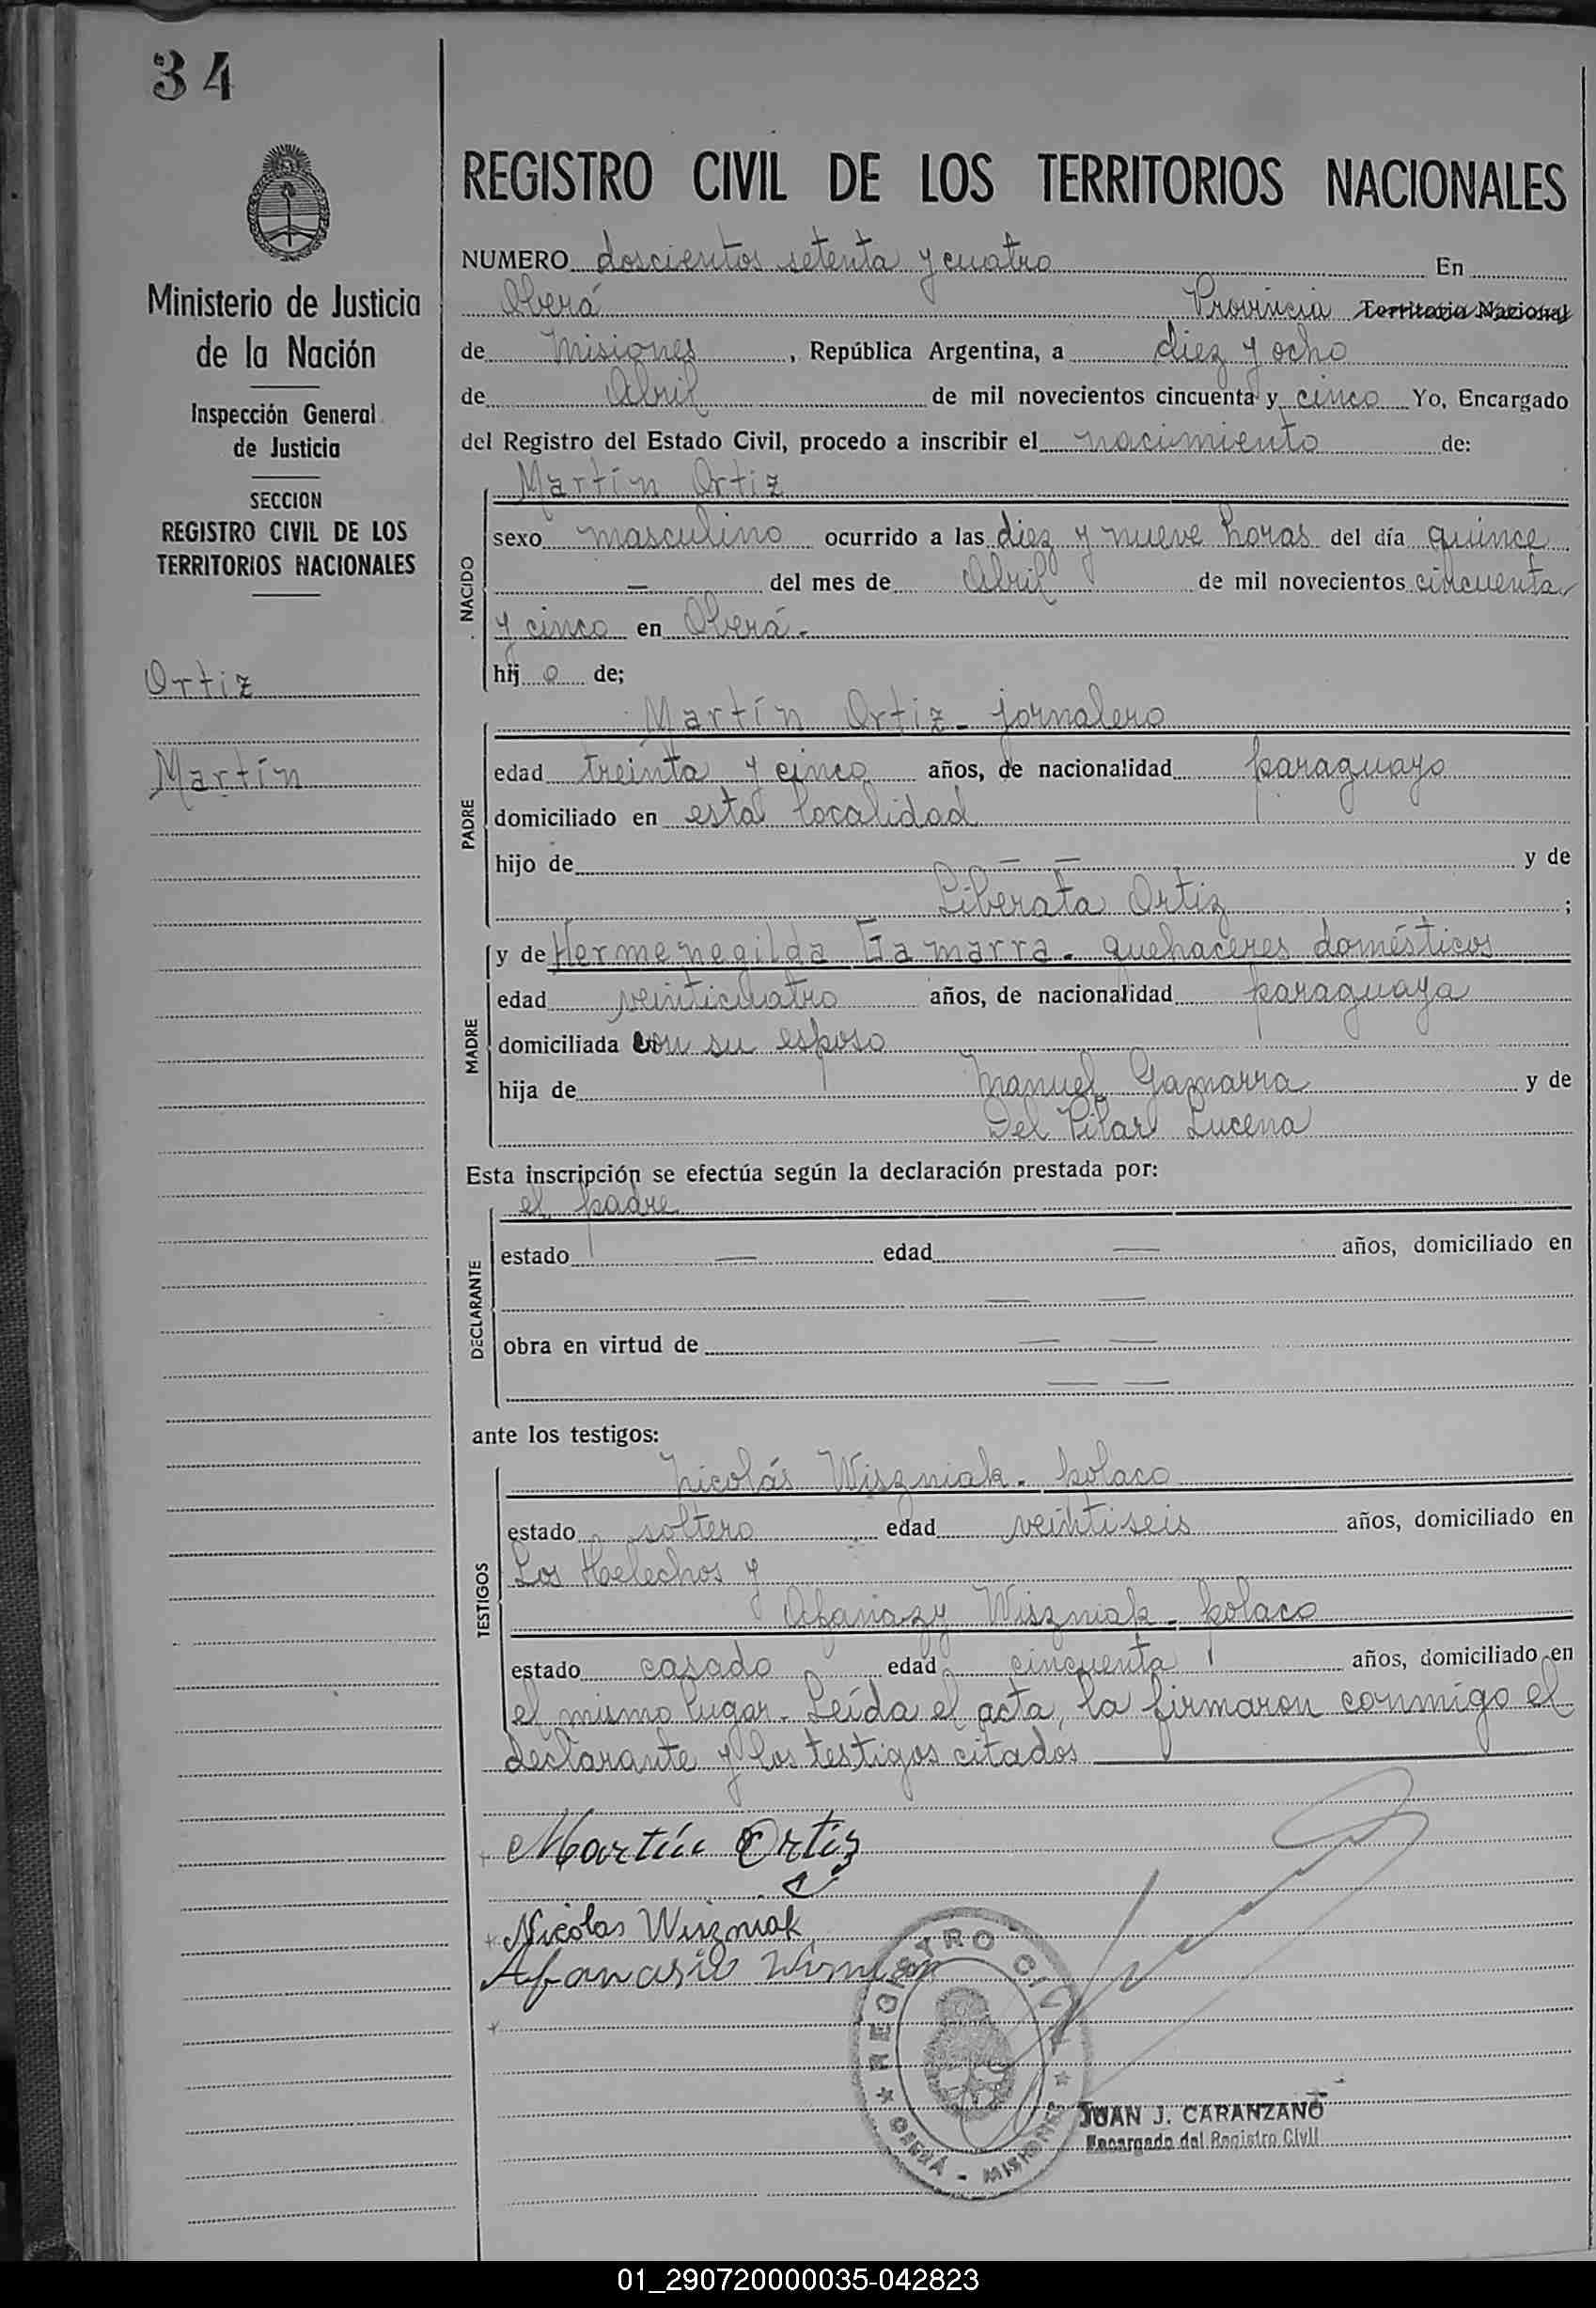 34
REGISTRO CIVIL DE LOS TERRITORIOS NACIONALES
Ministerio de Justicia
de la Nación
Inspección General
de Justicia
SECCION
REGISTRO CIVIL DE LOS
TERRITORIOS NACIONALES
Ortiz
Martín
NUMERO doscientos setenta y cuatro En
Oberá Provincia Territorio Nacional
de Misiones, República Argentina, a diez y ocho
de Abril de mil novecientos cincuenta y cinco Yo, Encargado
del Registro del Estado Civil, procedo a inscribir el nacimiento de:
Martín Ortiz
NACIDO
sexo masculino ocurrido a las diez y nueve horas del día quince
— del mes de Abril de mil novecientos cincuenta
y cinco en Oberá.-
hij o de;
PADRE
Martín Ortiz - jornalero
edad treinta y cinco años, de nacionalidad paraguayo
domiciliado en esta localidad
hijo de — — y de
Liberata Ortiz ;
MADRE
y de Hermenegilda Gamarra - quehaceres domésticos
edad veinticuatro años, de nacionalidad paraguaya
domiciliada con su esposo
hija de Manuel Gamarra y de
Del Pilar Lucena
Esta inscripción se efectúa según la declaración prestada por:
el padre
DECLARANTE
estado — edad — años, domiciliado en
— —
obra en virtud de — —
— —
ante los testigos:
TESTIGOS
Nicolás Wiszniak - polaco
estado soltero edad veintiseis años, domiciliado en
Los Helechos y
Afanazy Wiszniak - polaco
estado casado edad cincuenta años, domiciliado en
el mismo lugar. Leída el acta, la firmaron conmigo el
declarante y los testigos citados
Martín Ortiz
Nicolas Wiszniak
REGISTRO CIVIL
OBERÁ - MISIONES
JUAN J. CARANZANO
Encargado del Registro Civil
01_290720000035-042823